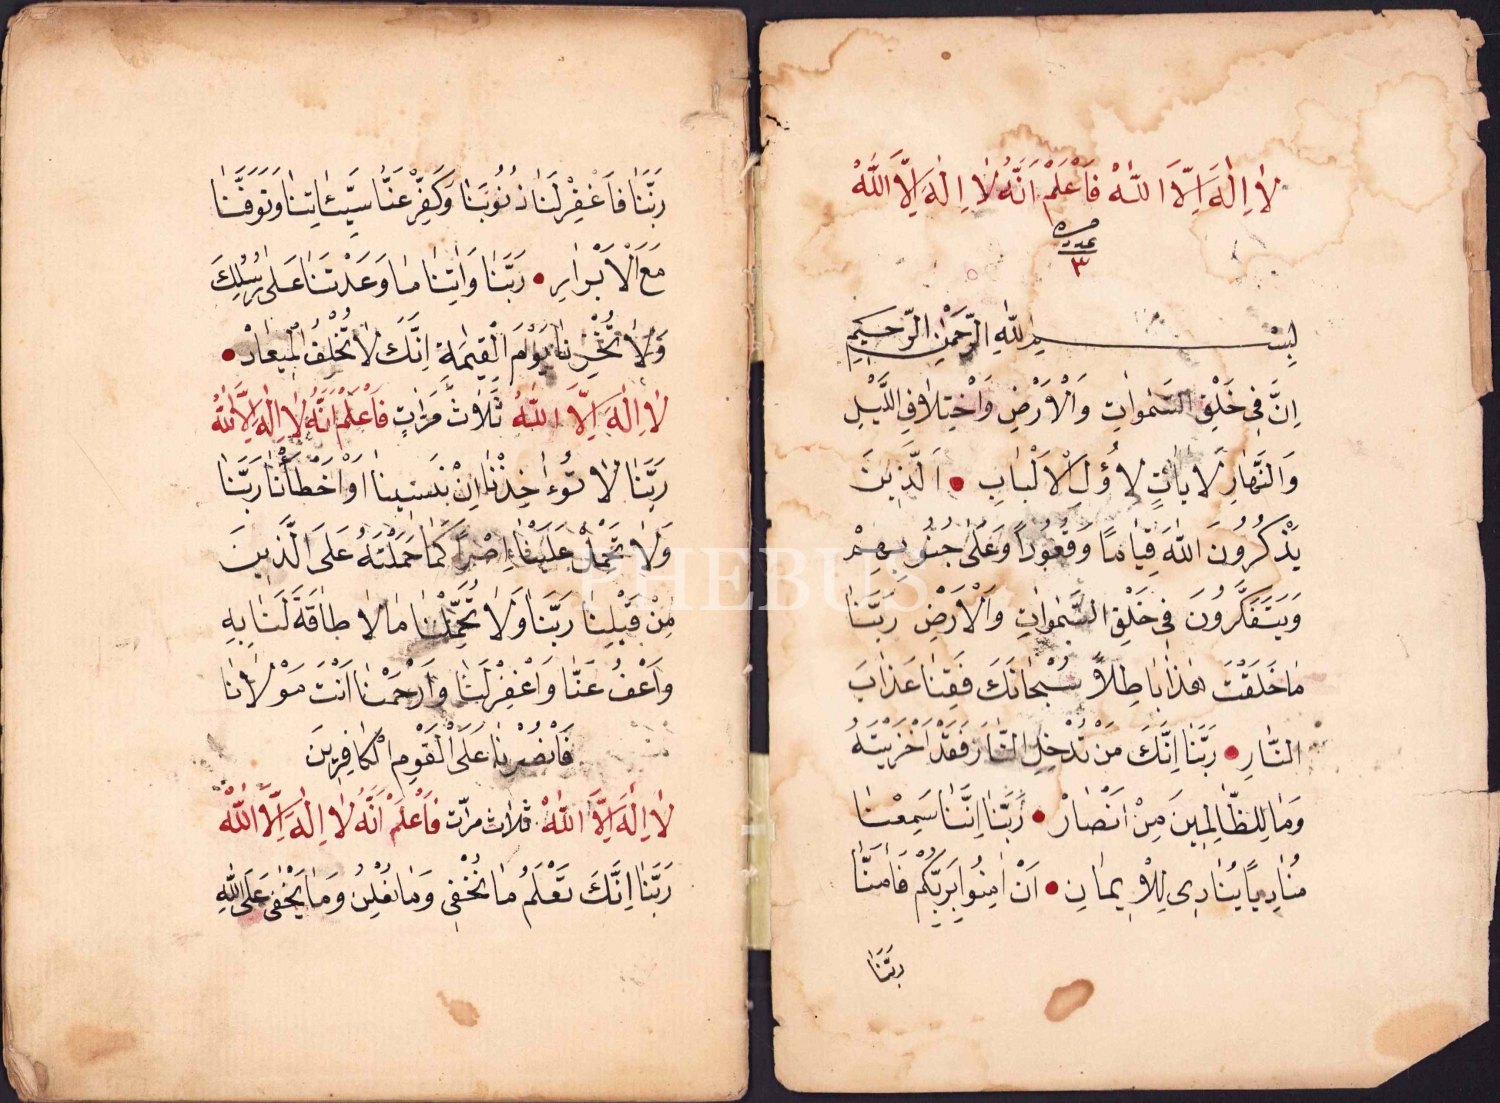 لَا اِلٰهَ اِلَّا اللّٰهُ فَاَعْلَمْ اَنَّهُ لَا اِلٰهَ اِلَّا اللّٰهُ
مره
عدد
٣
بِسْمِ اللّٰهِ الرَّحْمٰنِ الرَّحِيمِ
اِنَّ فِي خَلْقِ السَّمٰوَاتِ وَالْاَرْضِ وَاخْتِلَافِ اللَّيْلِ
وَالنَّهَارِ لَاٰيَاتٍ لِاُولِي الْاَلْبَابِ • اَلَّذِينَ
يَذْكُرُونَ اللّٰهَ قِيَامًا وَقُعُودًا وَعَلٰى جُنُوبِهِمْ
وَيَتَفَكَّرُونَ فِي خَلْقِ السَّمٰوَاتِ وَالْاَرْضِ رَبَّنَا
مَا خَلَقْتَ هٰذَا بَاطِلًا سُبْحَانَكَ فَقِنَا عَذَابَ
النَّارِ • رَبَّنَا اِنَّكَ مَنْ تُدْخِلِ النَّارَ فَقَدْ اَخْزَيْتَهُ
وَمَا لِلظَّالِمِينَ مِنْ اَنْصَارْ • رَبَّنَا اِنَّنَا سَمِعْنَا
مُنَادِيًا يُنَادِي لِلْاِيمَانِ • اَنْ اٰمِنُوا بِرَبِّكُمْ فَاٰمَنَّا
رَبَّنَا
رَبَّنَا فَاغْفِرْ لَنَا ذُنُوبَنَا وَكَفِّرْ عَنَّا سَيِّئَاتِنَا وَتَوَفَّنَا
مَعَ الْاَبْرَارِ • رَبَّنَا وَاٰتِنَا مَا وَعَدْتَنَا عَلٰى رُسُلِكَ
وَلَا تُخْزِنَا يَوْمَ الْقِيٰمَةِ اِنَّكَ لَا تُخْلِفُ الْمِيعَادْ •
لَا اِلٰهَ اِلَّا اللّٰهُ ثَلَاثَ مَرَّاتٍ فَاَعْلَمْ اَنَّهُ لَا اِلٰهَ اِلَّا اللّٰهُ
رَبَّنَا لَا تُوءَاخِذْنَا اِنْ نَسِينَا اَوْ اَخْطَأْنَا رَبَّنَا
وَلَا تَحْمِلْ عَلَيْنَا اِصْرًا كَمَا حَمَلْتَهُ عَلَى الَّذِينَ
مِنْ قَبْلِنَا رَبَّنَا وَلَا تُحَمِّلْنَا مَا لَا طَاقَةَ لَنَا بِهِ
وَاعْفُ عَنَّا وَاغْفِرْ لَنَا وَارْحَمْنَا اَنْتَ مَوْلَانَا
فَانْصُرْنَا عَلَى الْقَوْمِ الْكَافِرِينَ
لَا اِلٰهَ اِلَّا اللّٰهُ ثلاث مرّات فَاَعْلَمْ اَنَّهُ لَا اِلٰهَ اِلَّا اللّٰهُ
رَبَّنَا اِنَّكَ تَعْلَمُ مَا نُخْفِي وَمَا نُعْلِنُ وَمَا يَخْفٰى عَلَى اللّٰهِ
PHEBUS